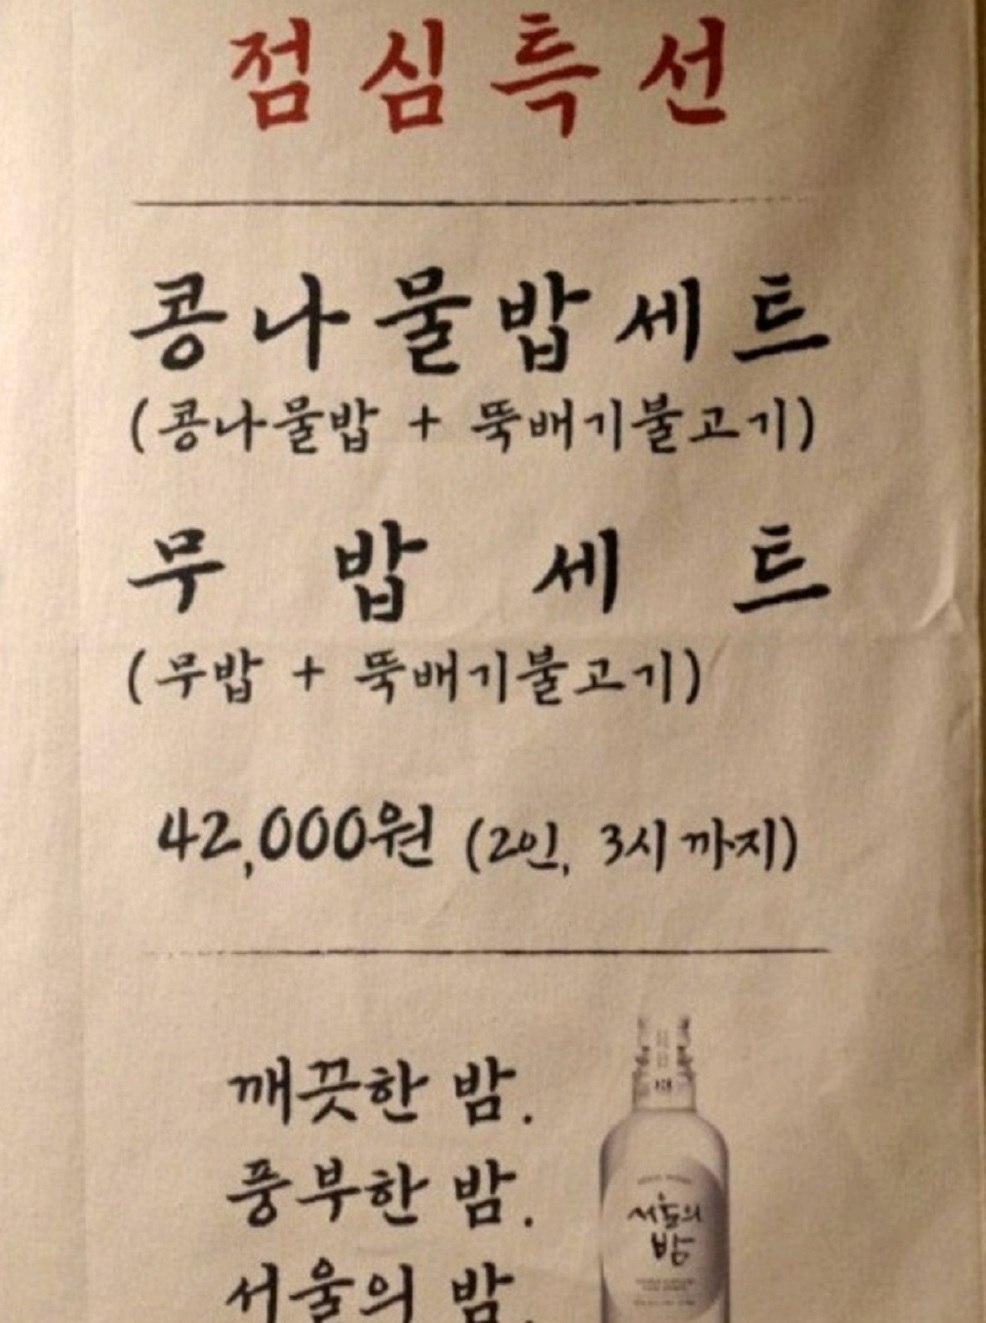 점심특선
콩나물밥세트
(콩나물밥 + 뚝배기불고기)
무밥세트
(무밥 + 뚝배기불고기)
42,000원 (2인, 3시까지)
깨끗한 밤.
풍부한 밤.
서울의 밤.
서울의
밤